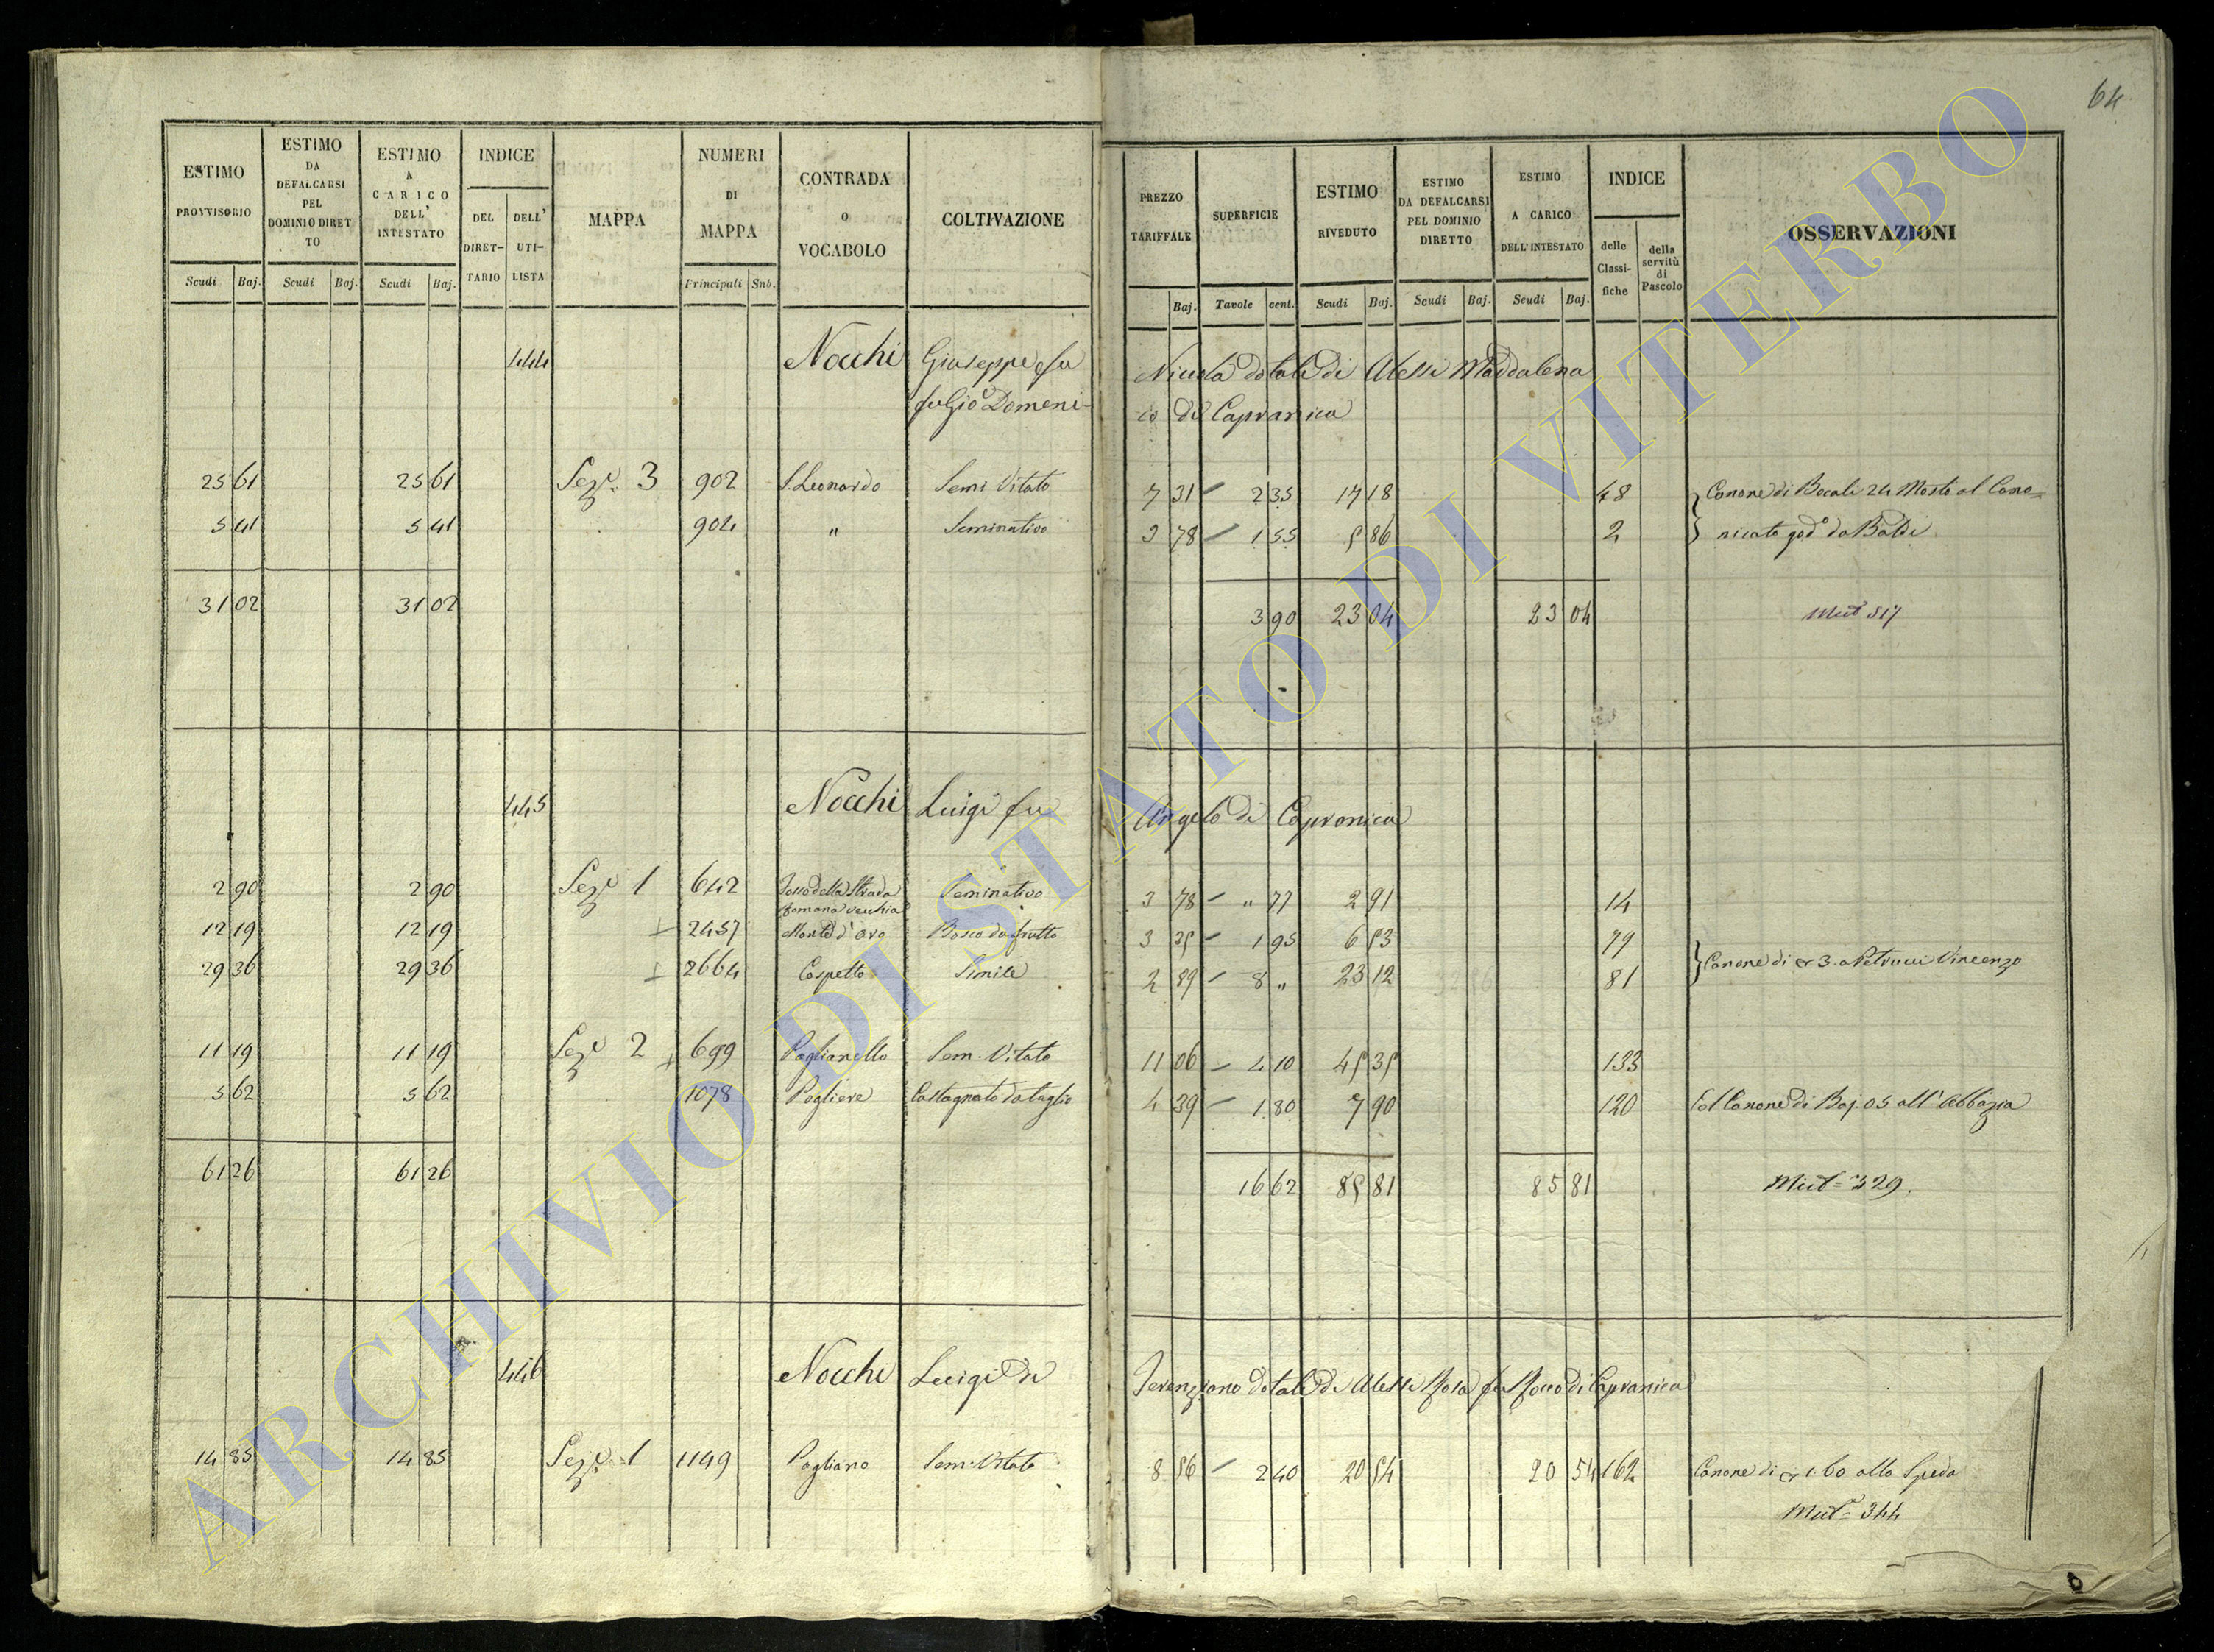 64
ESTIMO PROVVISORIO
ESTIMO DA DEFALCARSI PEL DOMINIO DIRETTO
ESTIMO A CARICO DELL' INTESTATO
INDICE
DEL DIRET-TARIO
DELL' UTI-LISTA
MAPPA
NUMERI DI MAPPA
CONTRADA O VOCABOLO
COLTIVAZIONE
PREZZO TARIFFALE
SUPERFICIE
ESTIMO RIVEDUTO
ESTIMO DA DEFALCARSI PEL DOMINIO DIRETTO
ESTIMO A CARICO DELL' INTESTATO
INDICE
delle Classi-fiche
della servitù di Pascolo
OSSERVAZIONI
Scudi Baj. Scudi Baj. Scudi Baj. Principali Sub. Baj. Tavole cent. Scudi Baj. Scudi Baj. Scudi Baj.
444 Nocchi Giuseppe fu Nicola dotale di Alessi Maddalena
fu Gio Domeni- co di Capranica
25 61 25 61 Sez.e 3 902 S. Leonardo Semi Vitato 7 31 — 2 35 17 18 48 Canone di Bocali 24 Mosto al Cano=
5 41 5 41 904 " Seminativo 3 78 — 1 55 5 86 2 nicato god.o da Baldi
31 02 31 02 3 90 23 04 23 04 Mut.a 517
445 Nocchi Luigi fu Angelo di Capranica
2 90 2 90 Sez.e 1 642 Fosso della Strada Romana Vecchia Seminativo 3 78 — " 77 2 91 14
12 19 12 19 2457 Monte d'oro Bosco da frutto 3 35 — 1 95 6 53 79
29 36 29 36 2664 Cospetto Simile 2 89 — 8 " 23 12 81 Canone di 3. a Petrucci Vincenzo
11 19 11 19 Sez.e 2 699 Paglianello Sem. Vitato 11 06 — 4 10 45 35 133
5 62 5 62 1078 Pogliere Castagnato da taglio 4 39 — 1 80 7 90 120 Col Canone di Baj. 05 all' Abbazia
61 26 61 26 16 62 85 81 85 81 Mut.= 329.
446 Nocchi Luigi di Terenziano dotale di Alessi Rosa fu Rocco di Capranica
14 85 14 85 Sez.e 1 1149 Pogliano Sem. Vitato 8 56 — 2 40 20 54 20 54 162 Canone di 1.60 allo Speda
Mut.= 344
ARCHIVIO DI STATO DI VITERBO